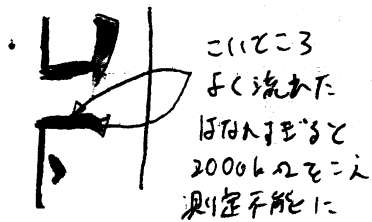 こいところ
よく流れた
はなれすぎると
2000kΩをこえ
測定不能に